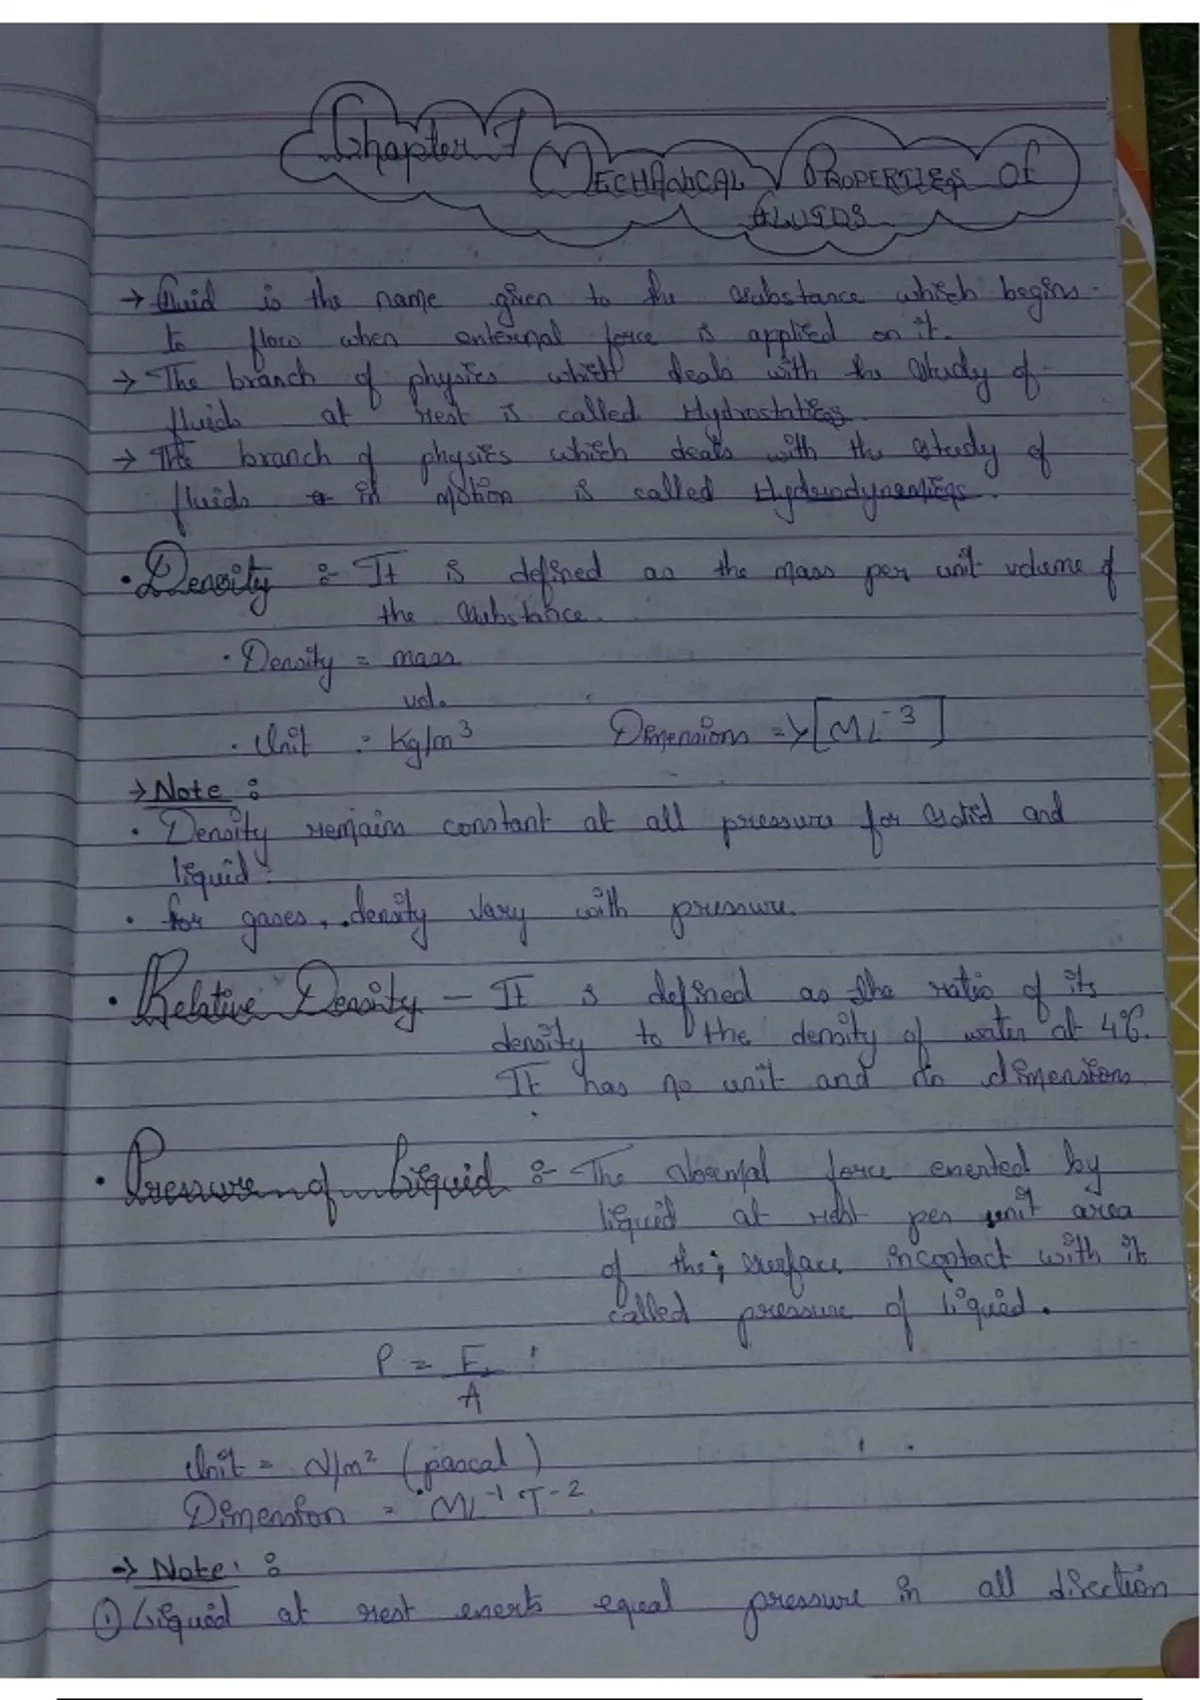 Chapter 7
MECHANICAL PROPERTIES OF
FLUIDS
→ fluid is the name given to the substance which begins
to flow when external force is applied on it.
→ The branch of physics which deals with the study of
fluids at rest is called Hydrostatics
→ The branch of physics which deals with the study of
fluids in motion is called Hydrodynamics.
• Density :- It is defined as the mass per unit volume of
the substance.
• Density = mass
vol.
• Unit = Kg/m³ Dimensions => [ML⁻³]
→ Note :
• Density remains constant at all pressure for solid and
liquid.
• for gases, density vary with pressure.
• Relative Density – It is defined as the ratio of its
density to the density of water at 4°C.
It has no unit and no dimensions
• Pressure of Liquid :- The Normal force exerted by
liquid at rest per unit area
of the surface incontact with it
called pressure of liquid.
P = F
A
Unit = N/m² (pascal)
Dimension = ML⁻¹T⁻²
→ Note :
① Liquid at rest exerts equal pressure in all direction